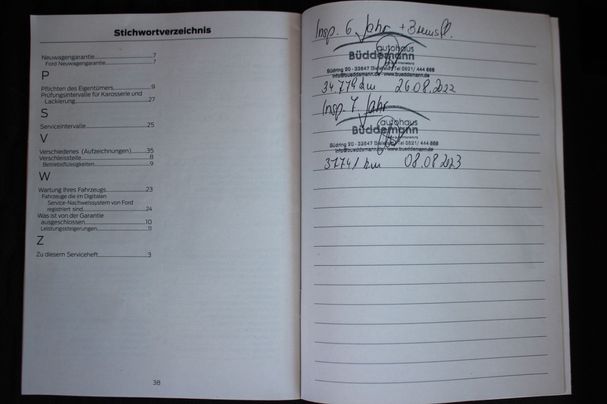 Stichwortverzeichnis
Neuwagengarantie 7
Ford Neuwagengarantie 7
P
Pflichten des Eigentümers 9
Prüfungsintervalle für Karosserie und
Lackierung 27
S
Serviceintervalle 25
V
Verschiedenes (Aufzeichnungen) 35
Verschleissteile 8
Betriebsflüssigkeiten 9
W
Wartung Ihres Fahrzeugs 23
Fahrzeuge die im Digitalen
Service-Nachweissystem von Ford
registriert sind 24
Was ist von der Garantie
ausgeschlossen 10
Leistungssteigerungen 11
Z
Zu diesem Serviceheft 3
38
Insp. 6 Jahr + Bremsfl.
autohaus
Büddemann
Büdring 20 - 33647 Bielefeld Tel 0521/ 444 888
info@bueddemann.de www.bueddemann.de
34.779 km 26.08.2022
Insp. 7 Jahr
autohaus
Büddemann
Büdring 20 - 33647 Bielefeld Tel 0521/ 444 888
info@bueddemann.de www.bueddemann.de
km 08.08.2023